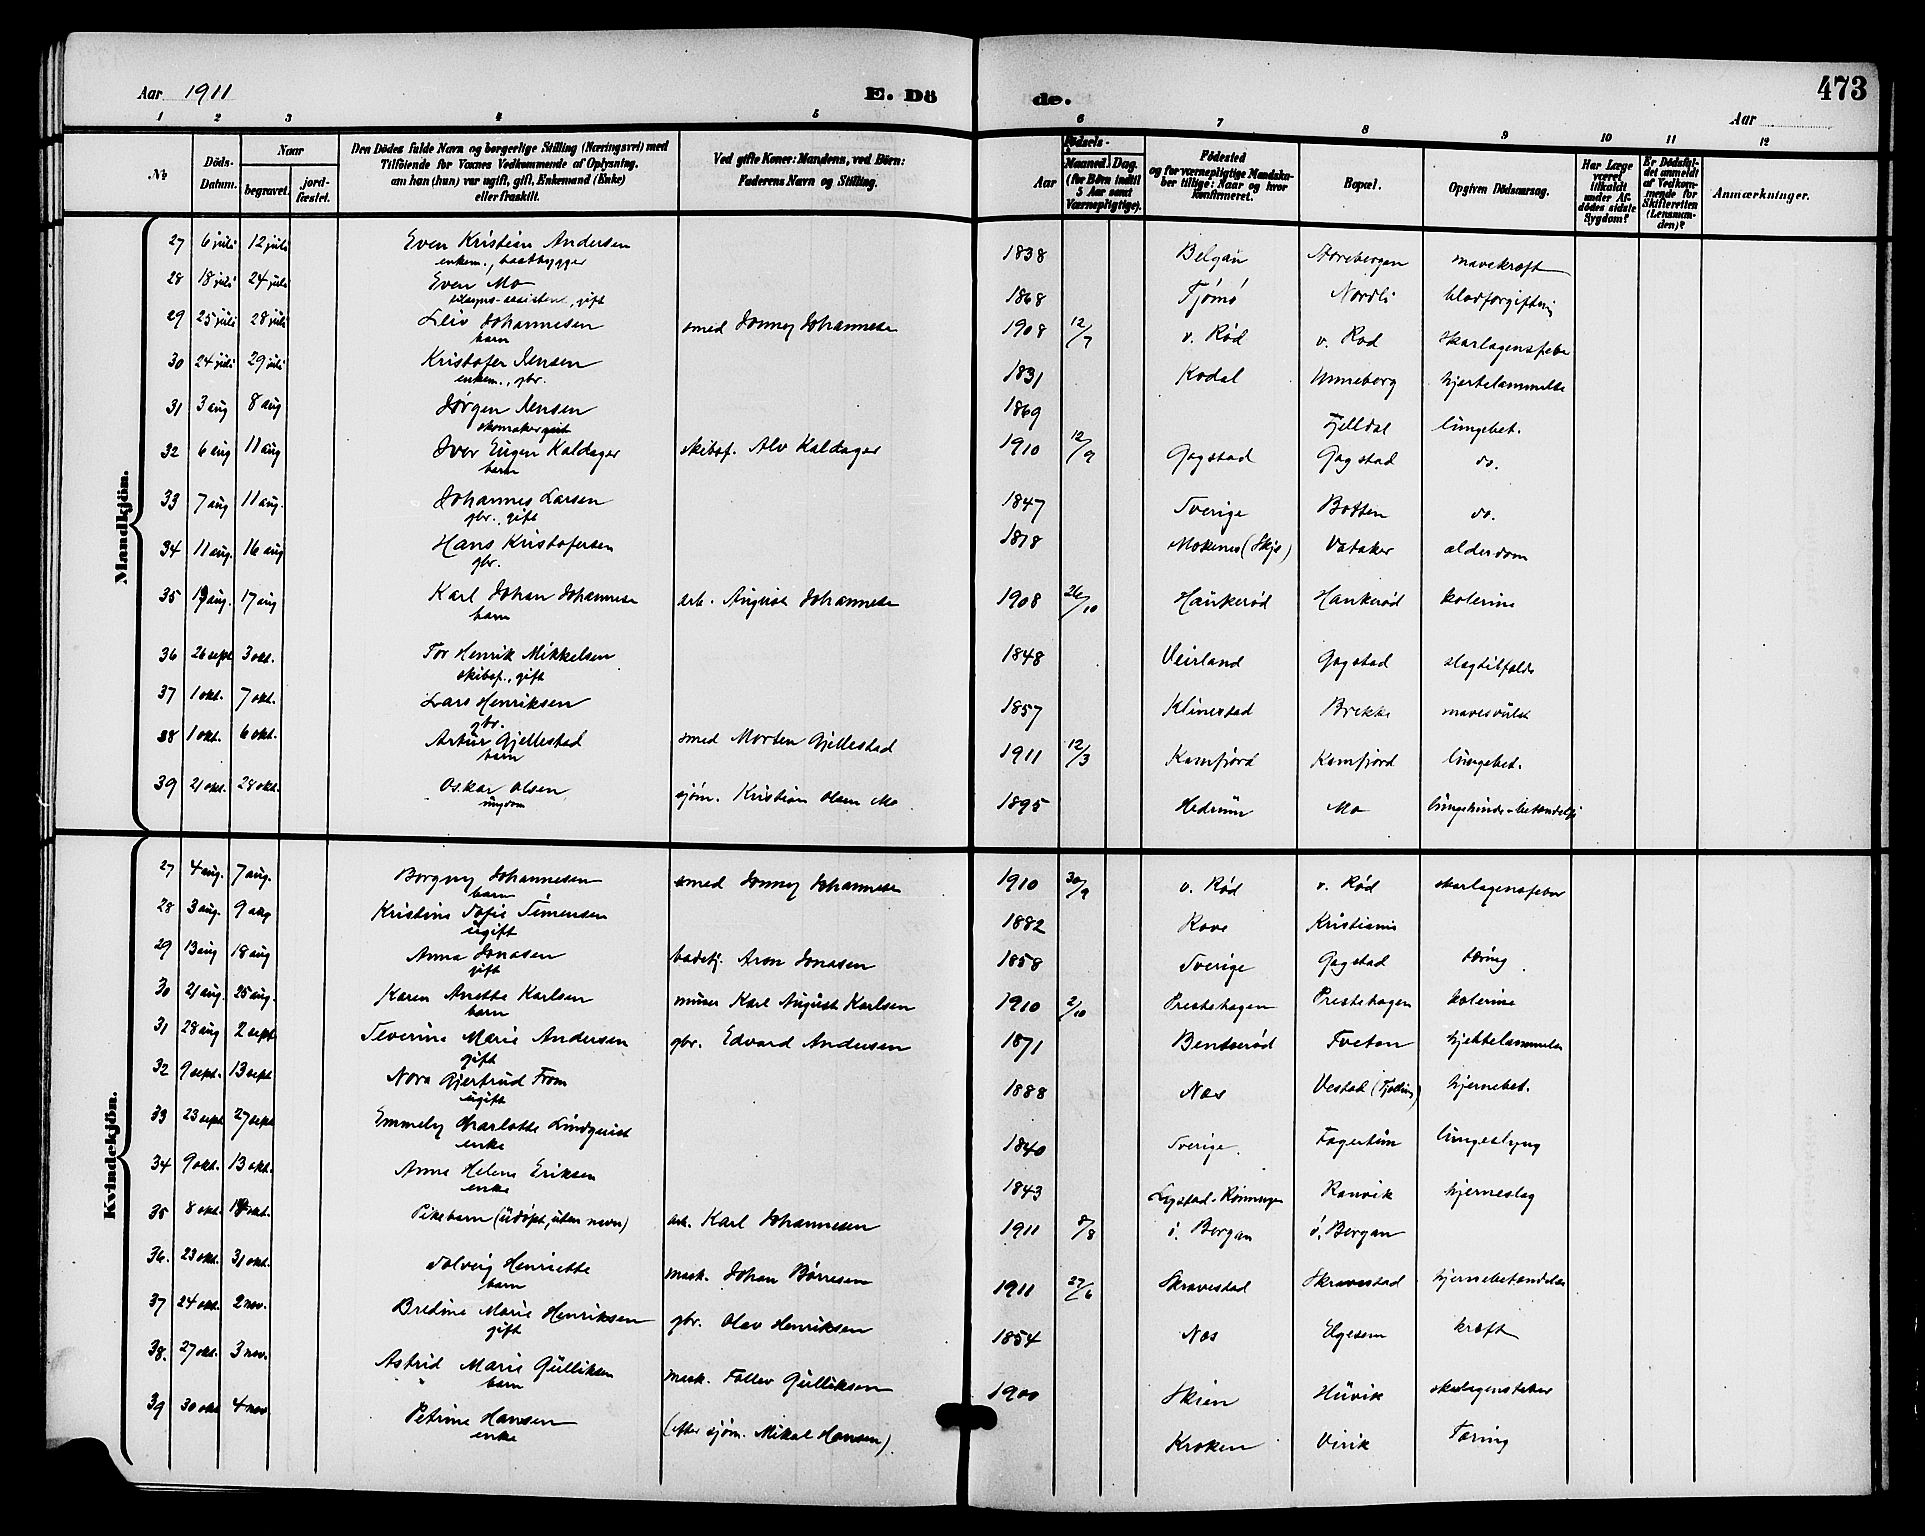 Aar 1911
E. Dö
de.
473
Aar
1 2 3 4 5 6 7 8 9 10 11 12
No
Döds-Datum.
Naar
begravet.
jord-fæstet.
Den Dödes fulde Navn og borgerlige Stilling (Næringsvei) med
Tilföiende for Voxnes Vedkommende af Oplysning,
om han (hun) var ugift, gift, Enkemand (Enke)
eller fraskilt.
Ved gifte Koner: Mandens, ved Börn:
Faderens Navn og Stilling.
Födsels-
Aar
Maaned. Dag.
(for Börn indtil
5 Aar samt
Værnepligtige).
Födested
og for værnepligtige Mandska-
ber tillige: Naar og hvor
konfirmeret.
Bopæl.
Opgiven Dödsaarsag.
Har Læge
været
tilkaldt
under Af-
dödes sidste
Sygdom?
Er Dödsfal-
det anmeldt
af Vedkom-
mende for
Skifteretten
(Lensman-
den)?
Anmærkninger.
Mandkjön.
27 6 juli 12 juli Even Kristian Andersen 1838 Bergan Norebergan mavekræft
enkem., baatbygger
28 18 juli 24 juli Even Mo 1868 Tjømø Nordli blodforgiftnin
gift
29 25 juli 28 juli Leiv Johannesen smed Jonney Johannese 1908 12/7 v. Rød v. Rød skarlagensfeber
barn
30 24 juli 29 juli Kristofer Jensen 1831 Kodal Unneberg hjertelammelse
enkem., gbr.
31 3 aug 8 aug Jørgen Jensen 1869 Fjelldal lungebet.
skomaker gift
32 6 aug 11 aug Iver Eugen Kaldager skibsf. Alv Kaldager 1910 12/9 Gogstad Gogstad do.
barn
33 7 aug 11 aug. Johannes Larsen 1847 Sverige Botten do.
gbr., gift
34 11 aug. 16 aug Hans Kristofersen 1818 Mokenes (Skjs) Vataker alderdom
gbr.
35 aug. 17 aug Karl Johan Johannese arb. August Johannese 1908 26/10 Haukerød Haukerød kolerine
barn
36 26 sept 3 okt. Tor Henrik Mikkelsen 1848 Veierland Gogstad slagtilfælde
skibsf., gift
37 1 okt. 7 okt. Lars Henriksen 1857 Klinestad Brekke mavesvulst
gbr.
38 1 okt. 6 okt. Artur Gjellestad smed Morten Gjellestad 1911 12/3 Kamfjord Kamfjord lungebet.
barn
39 21 okt. 28 okt. Oskar Olsen sjøm. Kristian Olsen Mo 1895 Hedrum Mo lungehinde-betændelse
ungdom
Kvindekjön.
27 4 aug. 7 aug. Borgny Johannesen smed Jonney Johannesen 1910 30/9 v. Rød v. Rød skarlagensfeber
barn
28 3 aug. 9 aug Kristine Sofie Simensen 1882 Kove Kristiania
ugift
29 13 aug 18 aug Anna Jonasen badetj. Aron Jonasen 1858 Sverige Gogstad tæring
gift
30 21 aug. 25 aug. Karen Anette Karlsen murer Karl August Karlsen 1910 2/10 Prestehagen Prestehagen kolerine
barn
31 28 aug 2 sept Severine Marie Andersen gbr. Edvard Andersen 1871 Bentserød Tveten hjertelammelse
gift
32 9 sept. 13 sept Nora Gjertrud From 1888 Nes Vestad (Tjølling) hjernebet.
ugift
33 23 sept 27 sept Emmely Charlotte Lindquist 1840 Sverige. Fagertun lungeslyng
enke
34 9 okt. 13 okt. Anna Helene Eriksen 1843 Lystad-Rønningen Ranvik hjerneslag
enke
35 8 okt. okt. Pikebarn (udøpt, uten navn) arb. Karl Johannesen 1911 8/8 ø. Bergan ø. Bergan
36. 23 okt. 31 okt. Solveig Henriette mask. Johan Børresen 1911 27/6 Skravestad Skravestad hjernebetændelse
barn
37 24 okt. 2 nov. Bredine Marie Henriksen gbr. Olav Henriksen 1854 Nes Elgesem kræft
gift
38. 27 okt. 3 nov. Astrid Marie Gulliksen mask. Tollev Gulliksen 1900 Skien Huvik skarlagensfeber
barn
39 30 okt 4 nov Petrine Hansen (efter sjøm. Mikal Hansen). Kroken Virik Tæring
enke